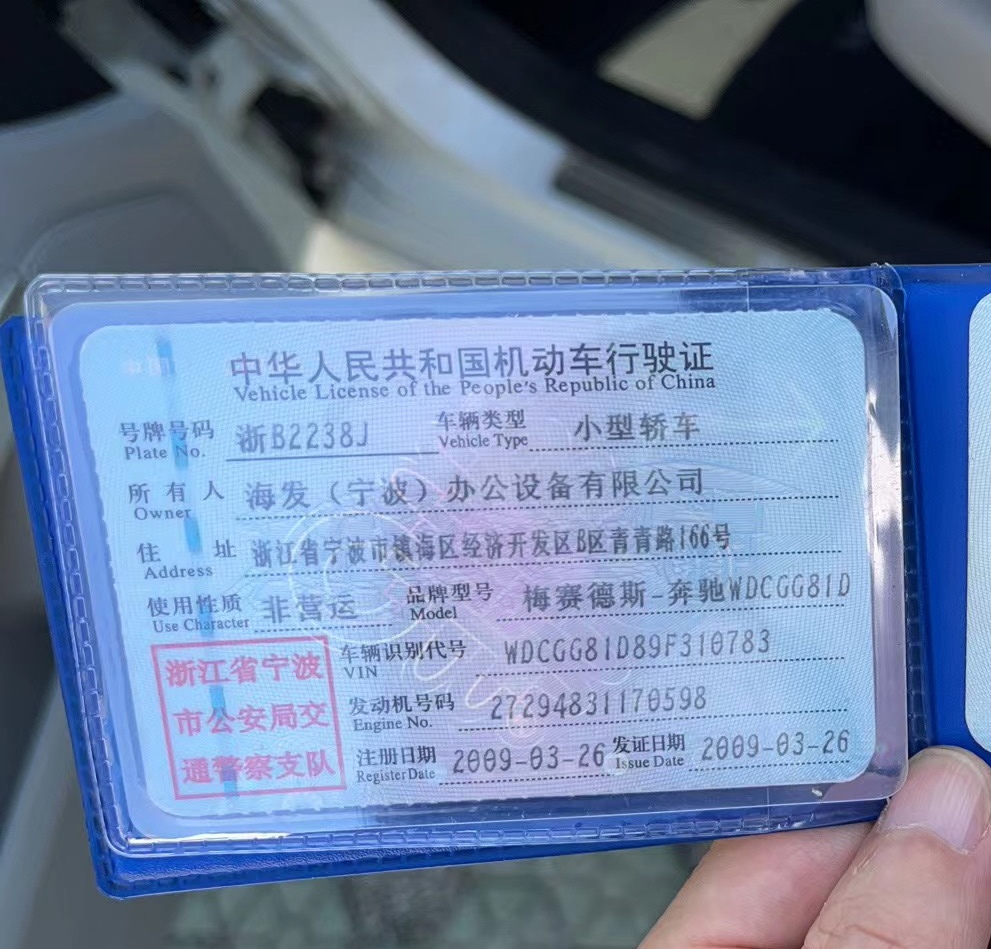 中华人民共和国机动车行驶证
Vehicle License of the People's Republic of China
号牌号码 浙B2238J 车辆类型 小型轿车
Plate No. Vehicle Type
所有人 海发（宁波）办公设备有限公司
Owner
住址 浙江省宁波市镇海区经济开发区B区青青路166号
Address
使用性质 非营运 品牌型号 梅赛德斯-奔驰WDCGG81D
Use Character Model
浙江省宁波
市公安局交
通警察支队
车辆识别代号 WDCGG81D89F310783
VIN
发动机号码 27294831170598
Engine No.
注册日期 2009-03-26 发证日期 2009-03-26
Register Date Issue Date